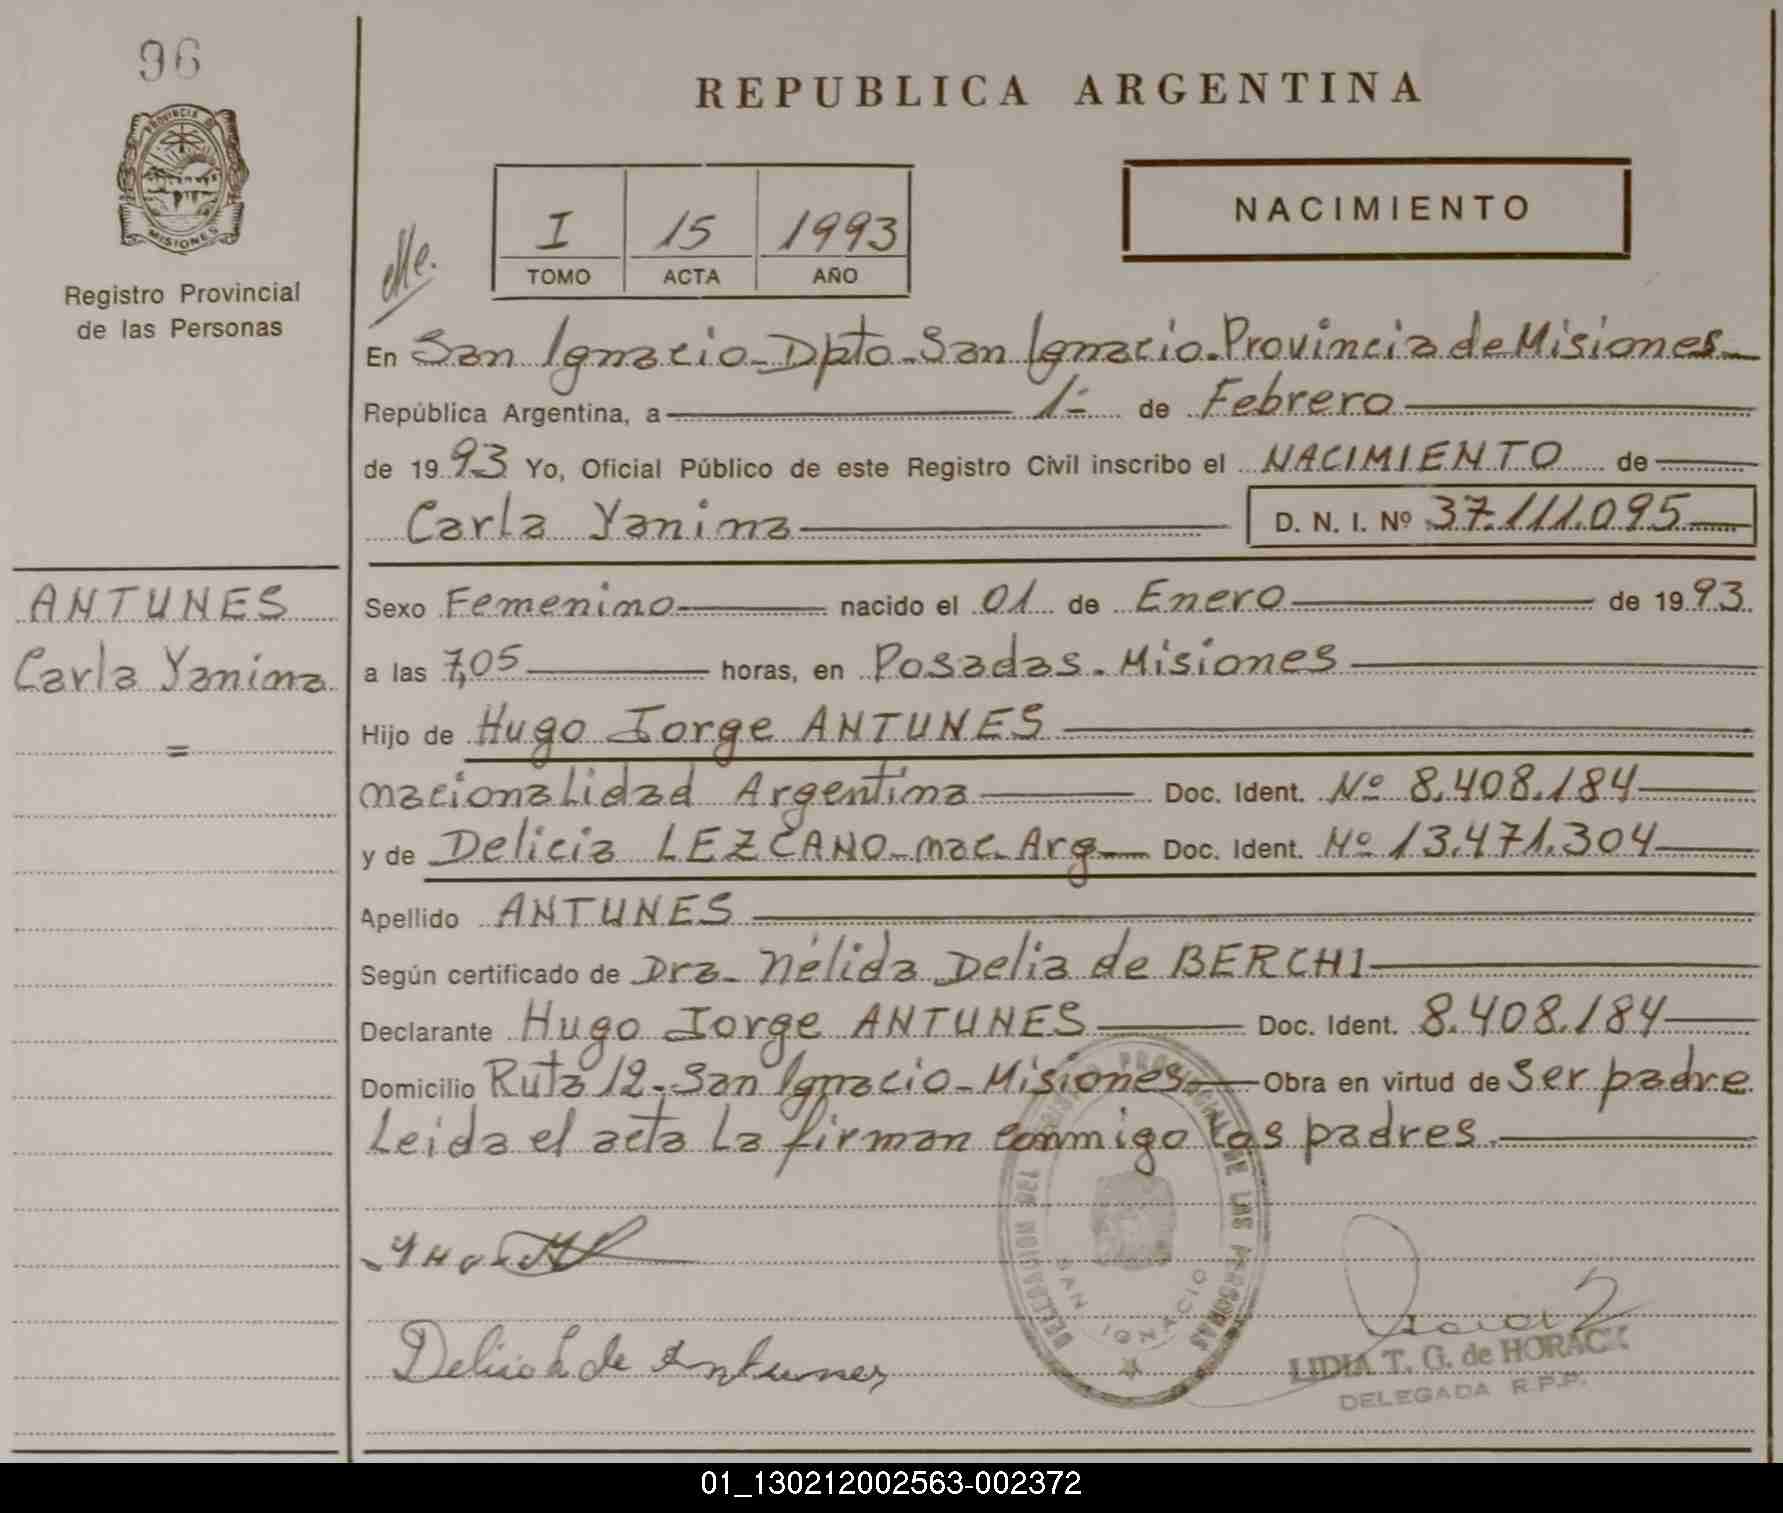 96
PROVINCIA DE
MISIONES
Registro Provincial
de las Personas
REPUBLICA ARGENTINA
NACIMIENTO
I 15 1993
TOMO ACTA AÑO
En San Ignacio - Dpto. San Ignacio. Provincia de Misiones
República Argentina, a 1- de Febrero
de 1993 Yo, Oficial Público de este Registro Civil inscribo el NACIMIENTO de
Carla Yanina D. N. I. Nº 37.111.095
ANTUNES
Carla Yanina
=
Sexo Femenino nacido el 01 de Enero de 1993
a las 7,05 horas, en Posadas - Misiones
Hijo de Hugo Jorge ANTUNES
nacionalidad Argentina Doc. Ident. Nº 8.408.184
y de Delicia LEZCANO - nac. Arg Doc. Ident. Nº 13.471.304
Apellido ANTUNES
Según certificado de Dra. Nélida Delia de BERCHI
Declarante Hugo Jorge ANTUNES Doc. Ident. 8.408.184
Domicilio Ruta 12 - San Ignacio - Misiones Obra en virtud de Ser padre
Leida el acta la firman conmigo los padres
DELEGACION REGISTRO PROVINCIAL DE LAS PERSONAS
SAN IGNACIO
Delicia L de Antunes
LIDIA T. G. de HORACK
DELEGADA R.P.P.
01_130212002563-002372